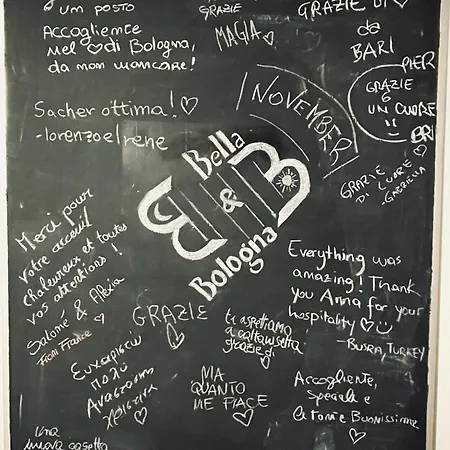 un posto
Accogliente
nel ♡ di Bologna,
da non mancare!
GRAZIE
MAGIA ♡
GRAZIE DI ♡
da
BARI
PIER
GRAZIE
UN CUORE
BRI
Sacher ottima! ♡
-lorenzo e Irene
NOVEMBER
GRAZIE
DI CUORE
-GABRIELLA
Bella
B&B
Bologna
Merci pour
votre acceuil
chaleureux et toutes
vos attentions!
Salomé & Alexia
From France ♡
Everything was
amazing! Thank
you Anna for your
hospitality ♡
-BUSRA, TURKEY
GRAZIE
ti aspettiamo
a caltanissetta
grazie di ♡
Ευχαριστώ
πολύ
Αναστασία
Χριστίνα
♡
MA
QUANTO
ME PIACE
♡
Accogliente,
Speciale e
la torre Buonissime
♡
Una
nuova casetta